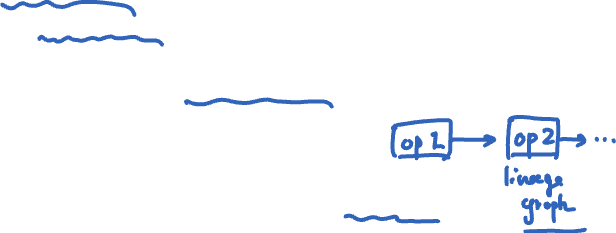 op 1 op 2 ...
lineage
graph